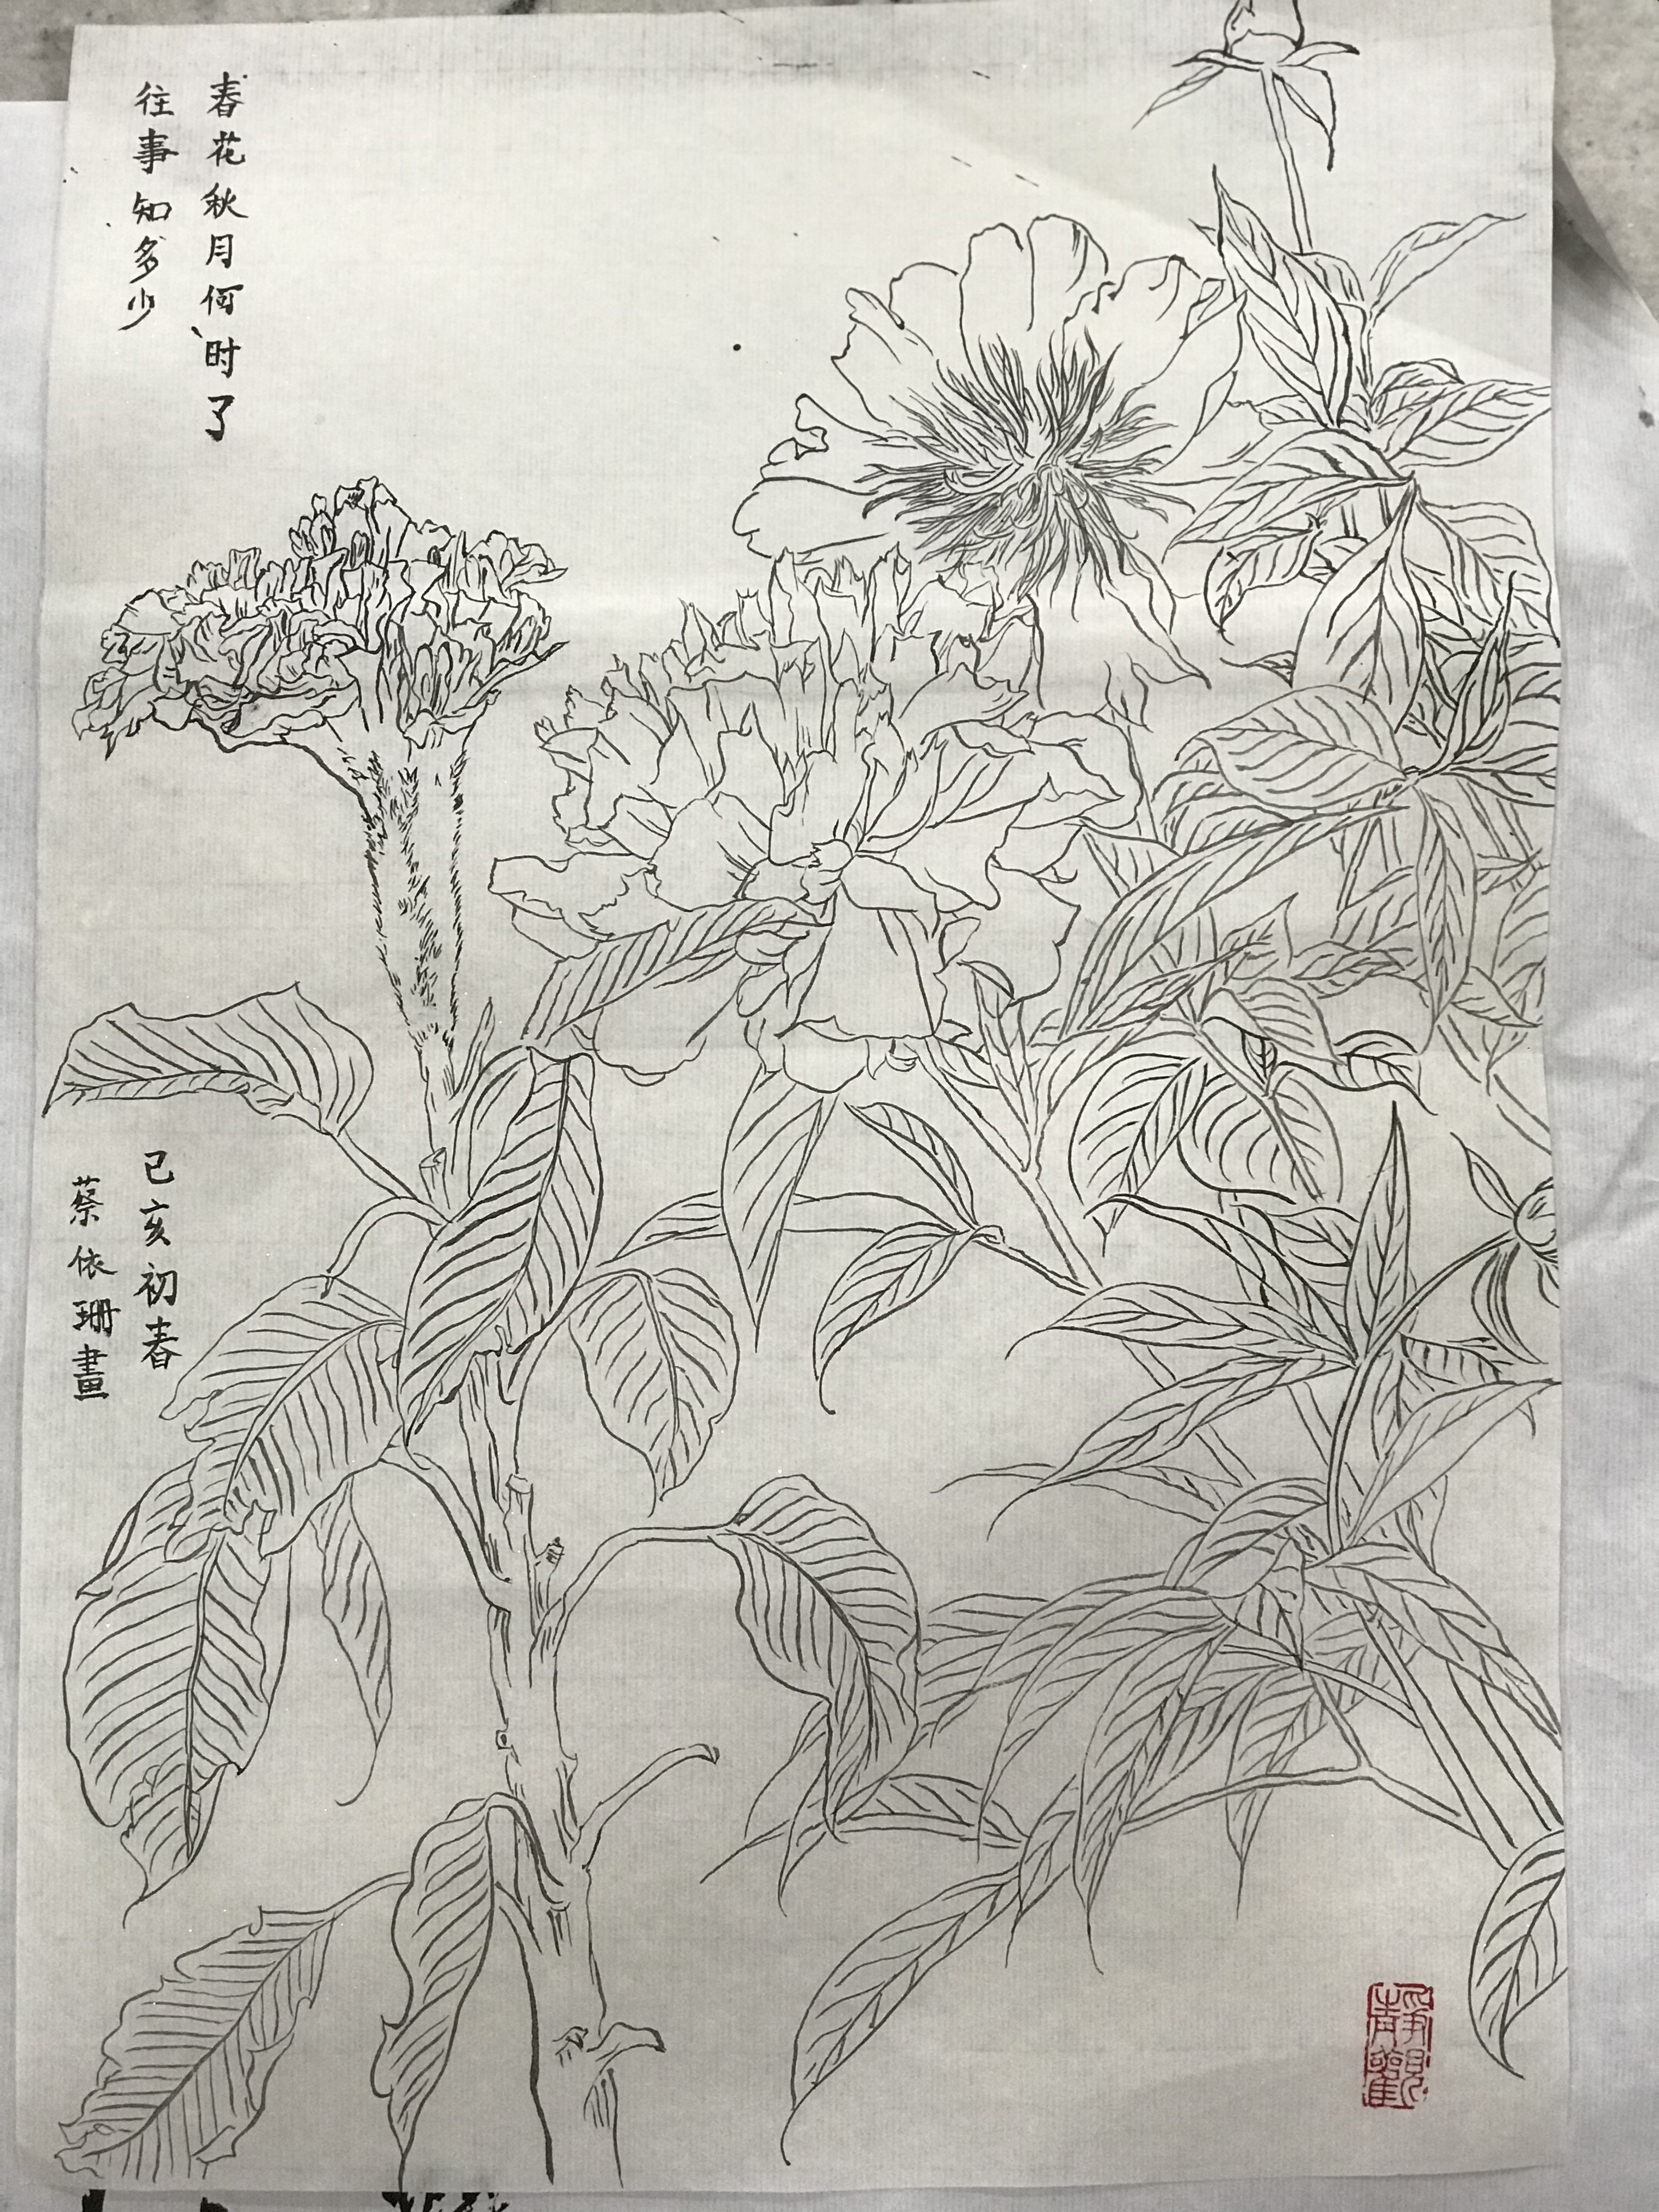 春花秋月何时了
往事知多少
己亥初春
蔡依珊畫
靜觀